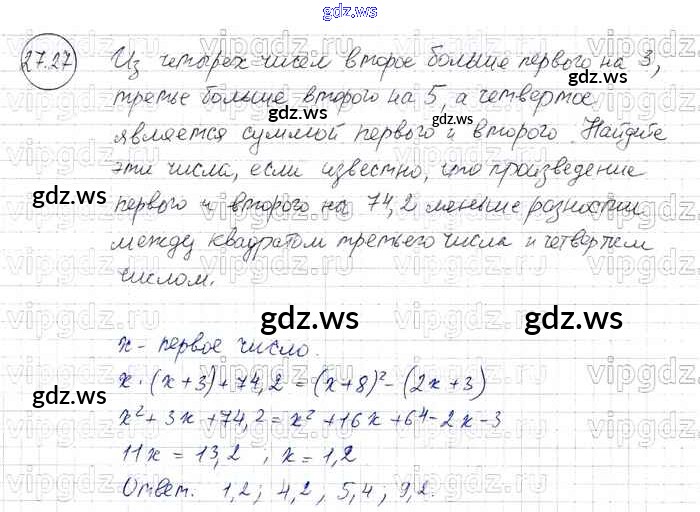 gdz.ws
27.27 Из четырех чисел второе больше первого на 3,
gdz.ws
третье больше второго на 5, а четвертое
gdz.ws
является суммой первого и второго. Найдите
эти числа, если известно, что произведение
gdz.ws gdz.ws
первого и второго на 74,2 меньше разности
между квадратом третьего числа и четвертым
числом.
gdz.ws gdz.ws
x - первое число.
x · (x + 3) + 74,2 = (x + 8)² - (2x + 3)
gdz.ws
x² + 3x + 74,2 = x² + 16x + 64 - 2x - 3
11x = 13,2 ; x = 1,2
Ответ. 1,2; 4,2; 5,4; 9,2.
gdz.ws gdz.ws